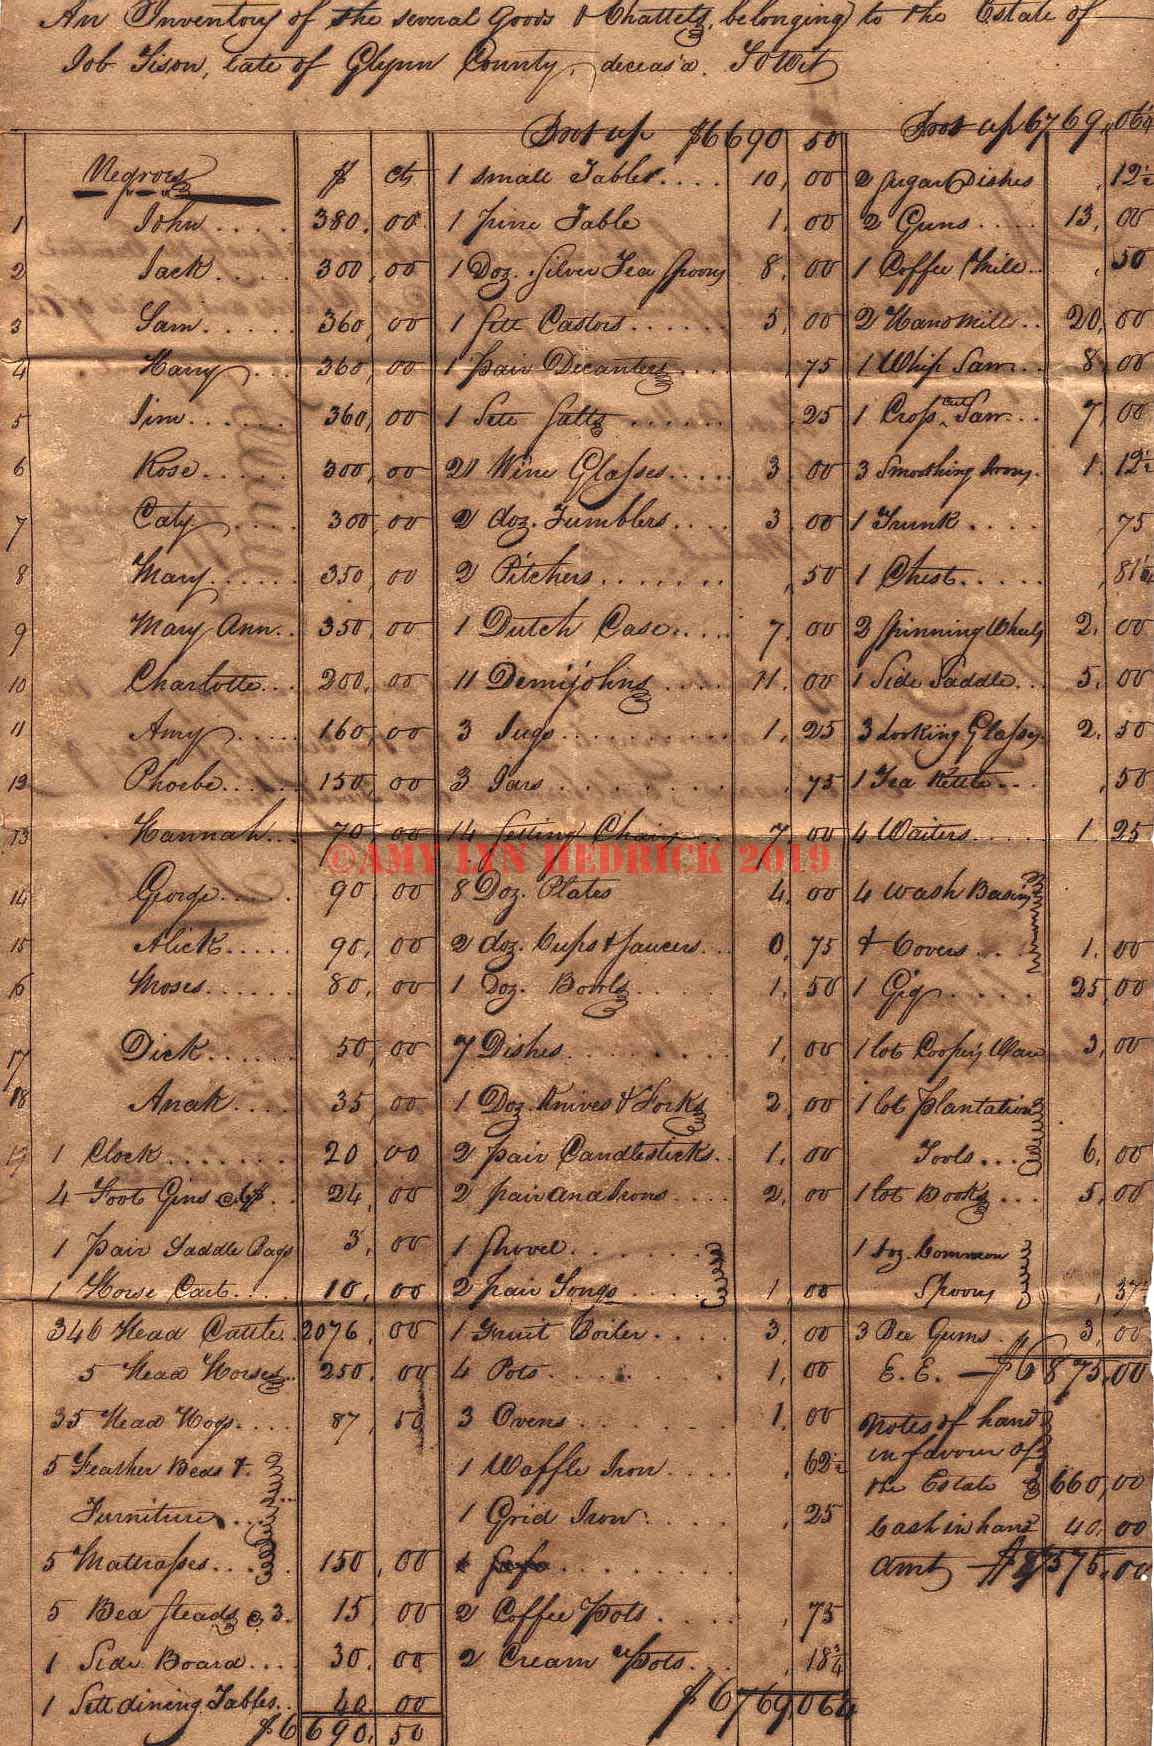 An Inventory of the several Goods & Chattels, belonging to the Estate of
Job Tison, late of Glynn County, deceas'd. To Wit
Negroes $ Cts
1 John .... 380. 00
2 Jack .... 300, 00
3 Sam ..... 360, 00
4 Harry ... 360, 00
5 Jim ..... 360, 00
6 Rose .... 300, 00
7 Caty .... 300, 00
8 Mary ..... 350, 00
9 Mary Ann .. 350, 00
10 Charlotte ... 200, 00
11 Amy .... 160, 00
12 Phoebe .... 150, 00
13 Hannah ... 70, 00
14 Gorge .... 90, 00
15 Alick ..... 90, 00
16 Moses ...... 80, 00
17 Dick ...... 50, 00
18 Anak .... 35, 00
19 1 Clock ....... 20 00
4 Foot Gins @ 6$ .. 24, 00
1 pair Saddle Bags 3, 00
1 Horse Cart .... 10, 00
346 Head Cattle .. 2076, 00
5 Head Horses .. 250, 00
35 Head Hogs .... 87, 50
5 Feather Beds & .
Furniture ...
5 Mattrasses .... 150, 00
5 Bed steads @ 3. 15, 00
1 Side Board .... 30, 00
1 Sett dining Tables .. 40 00
$6690, 50
Foot up $6690, 50
1 small Table .... 10, 00
1 pine Table 1, 00
1 Doz. Silver Tea Spoons 8, 00
1 Sett Castors ...... 5, 00
1 pair Decanters ... , 75
1 Sett Salts ...... , 25
21 Wine Glasses ..... 3, 00
2 doz. Tumblers .... 3, 00
2 Pitchers ....... , 50
1 Dutch Case ..... 7, 00
11 Demijohns .... 11, 00
3 Jugs .......... 1, 25
3 Jars ......... , 75
14 Setting Chairs ... 7, 00
8 Doz. Plates 4, 00
2 doz. Cups & saucers ... 0, 75
1 Doz. Bowls ..... 1, 50
7 Dishes ......... 1, 00
1 Doz. Knives & Forks 2, 00
2 pair Candlesticks .. 1, 00
2 pair and Irons .... 2, 00
1 Shovel .......
2 pair Tongs ..... 1, 00
1 Fruit Boiler .... 3, 00
4 Pots ......... 1, 00
3 Ovens ........ 1, 00
1 Waffle Iron .... , 62½
1 Grid Iron ..... , 25
2 Coffee Pots .... , 75
2 Cream Pots ... , 18¾
$6769,06¼
Foot up 6769,,06¼
2 sugar Dishes , 12½
2 Guns ..... 13, 00
1 Coffee Mill .. , 50
2 Hand Mills .. 20, 00
1 Whip Saw ... 8, 00
1 Cross cut Saw ... 7, 00
3 Smoothing Irons . 1. 12½
1 Trunk .... , 75
1 Chest ..... , 81¼
2 Spinning Wheels 2. 00
1 Side Saddle ... 5. 00
3 Looking Glasses . 2, 50
1 Tea Kettle ... , 50
4 Waiters .... 1. 25
4 Wash Basins
& Covers ... 1. 00
1 Gig ..... 25, 00
1 lot Coopers Ware 3, 00
1 lot plantation
Tools ... 6, 00
1 lot Books ... 5, 00
1 Doz. Common
Spoons , 37
3 Bee Gums . 3, 00
E. E. — $6875,00
Notes of hand
in favour of
the Estate 660,00
Cash in hand 40, 00
Amt — $7575,00
©AMY LYN HEDRICK 2019